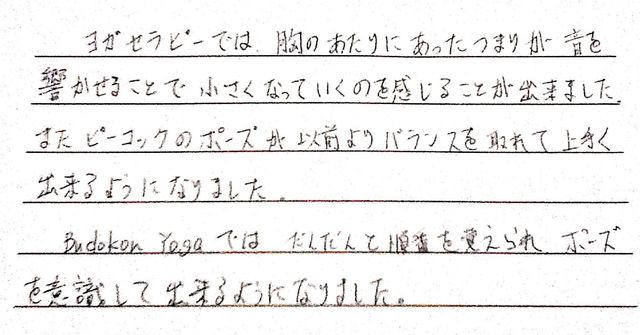 ヨガセラピーでは、胸のあたりにあったつまりが音を
響かせることで小さくなっていくのを感じることが出来ました。
またピーコックのポーズが以前よりバランスを取れて上手く
出来るようになりました。
Budokon Yogaでは だんだんと順番を覚えられ ポーズ
を意識して出来るようになりました。